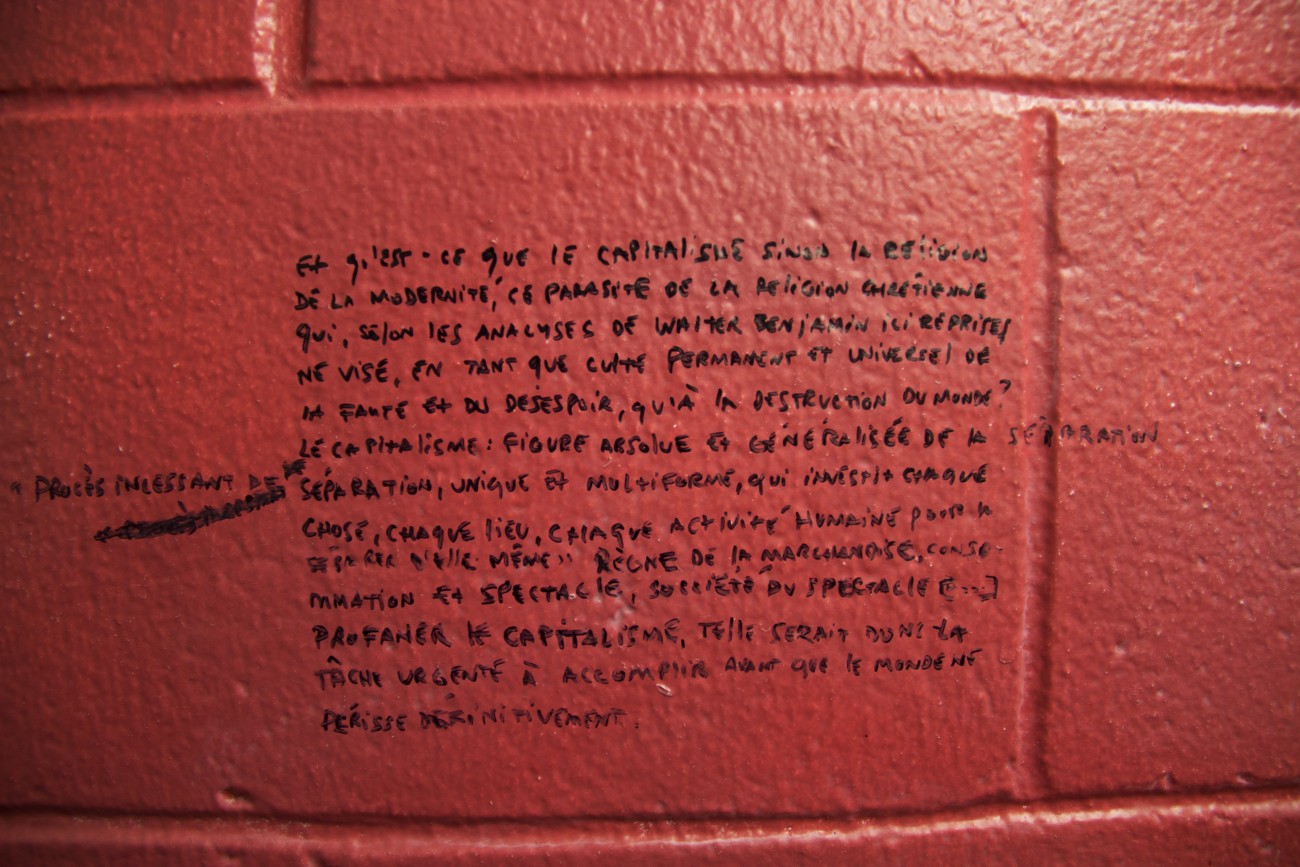 Et qu'est-ce que le capitalisme sinon la religion
de la modernité, ce parasite de la religion chrétienne
qui, selon les analyses de Walter Benjamin ici reprises
ne vise, en tant que culte permanent et universel de
la faute et du désespoir, qu'à la destruction du monde?
Le capitalisme: figure absolue et généralisée de la séparation
"procès incessant de
séparation, unique et multiforme, qui investit chaque
chose, chaque lieu, chaque activité humaine pour la
séparer d'elle même" règne de la marchandise, conso-
mmation et spectacle, société du spectacle [...]
Profaner le capitalisme, telle serait donc la
tâche urgente à accomplir avant que le monde ne
périsse définitivement.